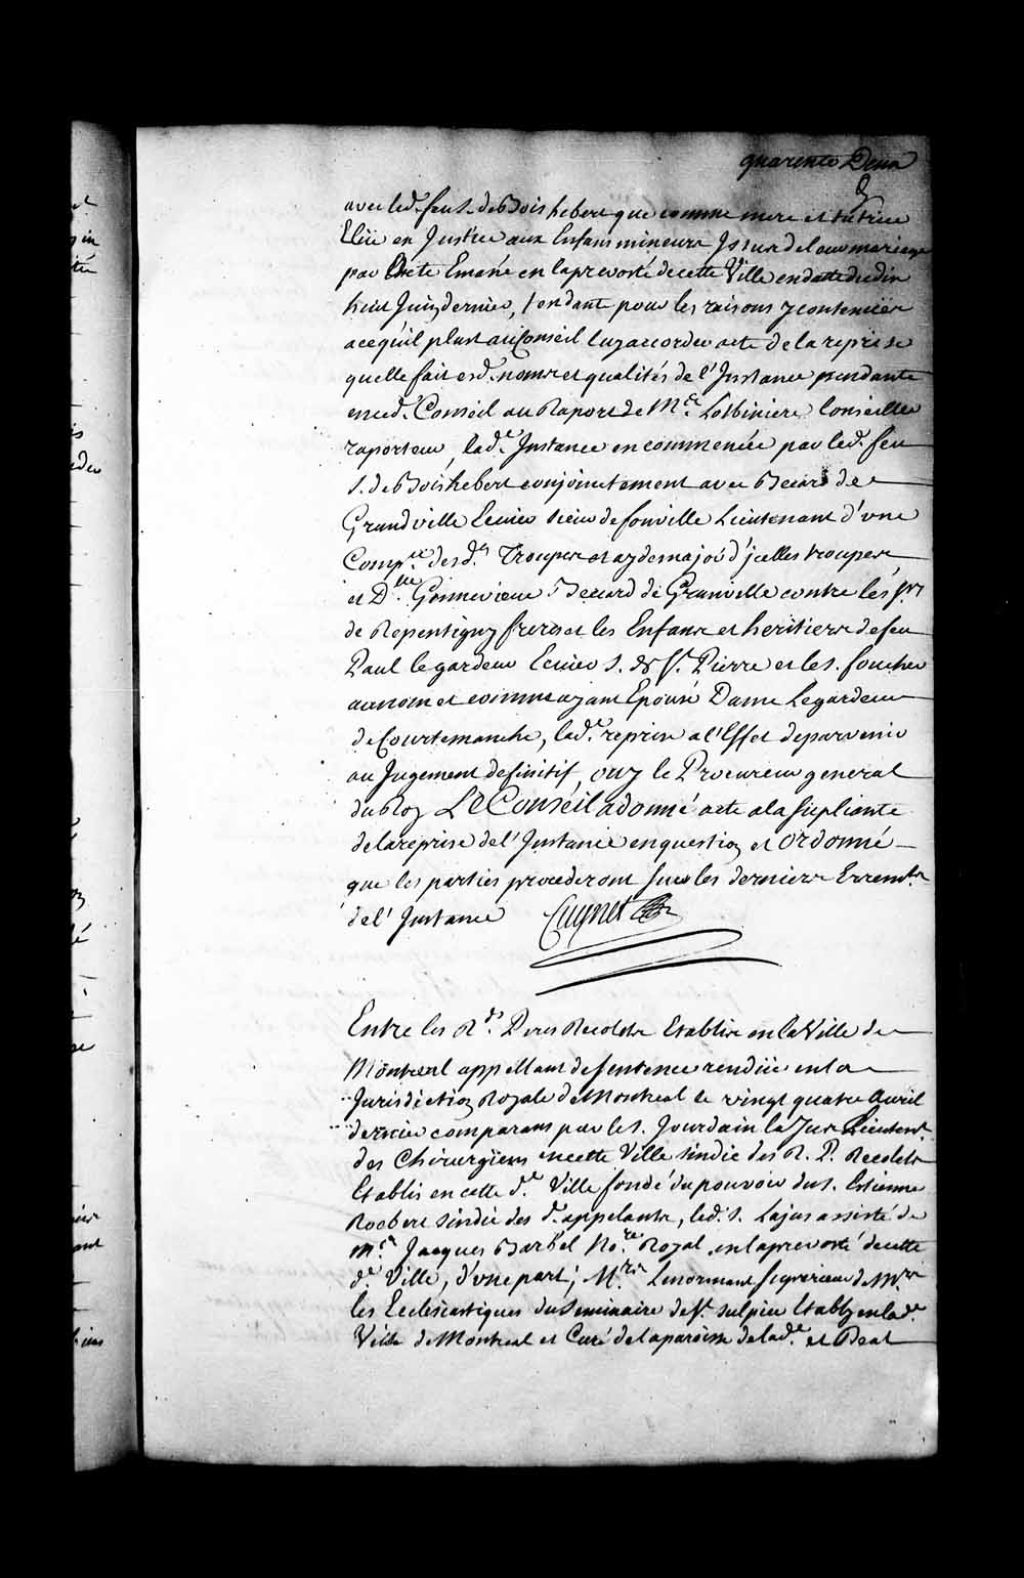 quarente Deux
avec led. feu S. de Boishebert que comme mere et tutrice
Elüe en Justice aux Enfans mineurs Issus de leur mariage
par Acte Emané en la prevosté de cette Ville en datte du dix
huit Juin dernier, tendant pour les raisons y contenües
a ce qu'il plust au Conseil luy accorder acte de la reprise
quelle fait esd. noms et qualités de l'Instance pendante
en ced. Conseil au Raport de Me. Lotbiniere Conseiller
raporteur, lade. Instance encommencée par led. feu
S. de Boishebert conjointement avec Becard de
Grandville Ecuier sieur de fonville Lieutenant d'vne
Compie. desds. Troupes et aydemajor d'jcelles troupes
et Dlle. Gennevieve Becard de Granville contre les Srs
de Repentigny freres et les Enfans et heritiers de feu
Paul legardeur Ecuier S. de St. Pierre et le S. foucher
au nom et comme ayant Epousé Dame Legardeur
de Courtemanche, lade. reprise a l'Effet de parvenir
au Jugement definitif, ouy le Procureur general
du Roy LE Conseil a donné acte a la supliante
de la reprise de l'Instance en question et ordonné
que les parties procederont sur les derniers Erremts
de l'Instance Cugnet
Entre les Rds. Peres Recolets Etablis en la Ville de
Montreal appellant de sentence rendüe en la
Jurisdiction Royale de Montreal le vingt quatre Avril
dernier comparans par le S. Jourdain la Jus Lieutent.
des Chirurgiens en cette Ville sindic des R. P. Recolets
Etablis en cette de. Ville fondé du pouvoir du S. Estienne
Rocbert sindic des d. appelants, led. S. Lajus assisté de
me. Jacques Barbel Nore. Royal en la prevosté de cette
de. Ville, d'vne part; Mre. Lenormant superieur de Mrs
les Ecclesiastiques du seminaire de St. sulpice Etably en lade.
Ville de Montreal et Curé de la paroisse de lade. et Deat